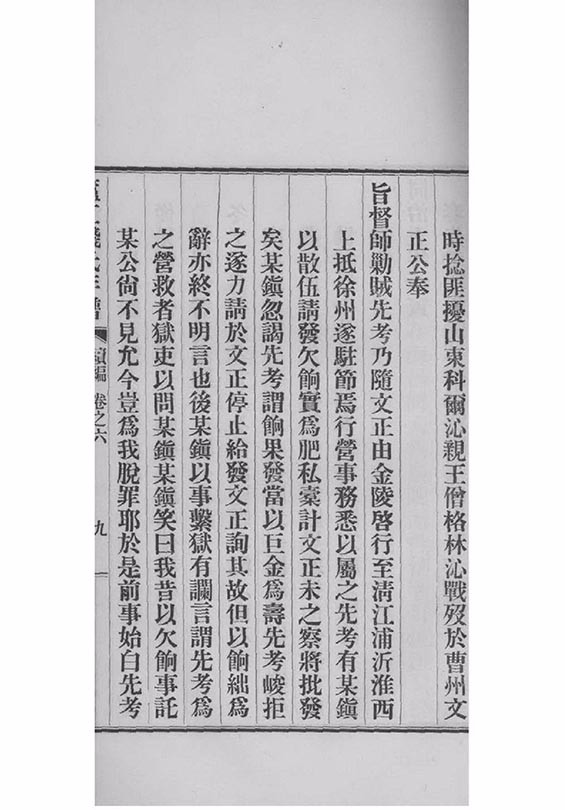 時捻匪擾山東科爾沁親王僧格林沁戰歿於曹州文
正公奉
旨督師勦賊先考乃隨文正由金陵啓行至淸江浦沂淮西
上抵徐州遂駐節焉行營事務悉以屬之先考有某鎭
以散伍請發欠餉實爲肥私橐計文正未之察將批發
矣某鎭忽謁先考謂餉果發當以巨金爲壽先考峻拒
之遂力請於文正停止給發文正詢其故但以餉絀爲
辭亦終不明言也後某鎭以事繫獄有讕言謂先考爲
之營救者獄吏以問某鎭某鎭笑曰我昔以欠餉事託
某公尙不見允今豈爲我脫罪耶於是前事始白先考
續編 卷之六
九